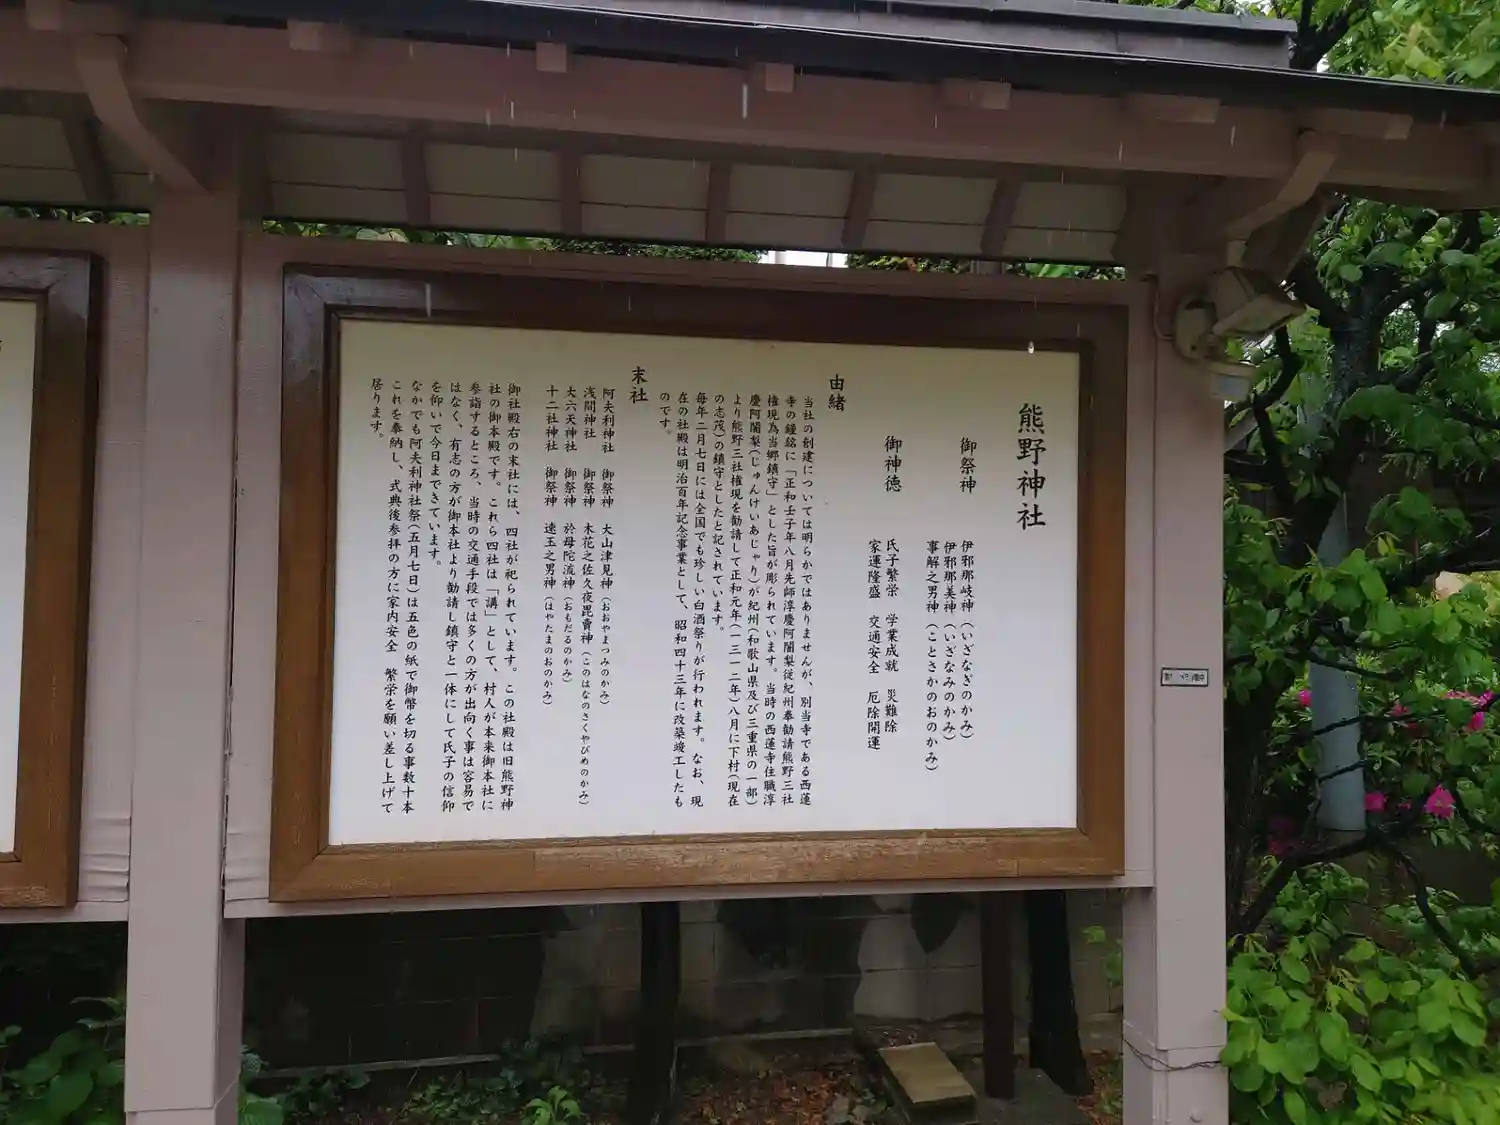 熊野神社
御祭神　伊邪那岐神（いざなぎのかみ）
伊邪那美神（いざなみのかみ）
事解之男神（ことさかのおのかみ）
御神徳　氏子繁栄　学業成就　災難除
家運隆盛　交通安全　厄除開運
由緒
当社の創建については明らかではありませんが、別当寺である西蓮
寺の鐘銘に「正和壬子年八月先師淳慶阿闍梨従紀州奉勧請熊野三社
権現為当郷鎮守」とした旨が彫られています。当時の西蓮寺住職淳
慶阿闍梨（じゅんけいあじゃり）が紀州（和歌山県及び三重県の一部）
より熊野三社権現を勧請して正和元年（一三一二年）八月に下村（現在
の志茂）の鎮守としたと記されています。
毎年二月七日には全国でも珍しい白酒祭りが行われます。なお、現
在の社殿は明治百年記念事業として、昭和四十三年に改築竣工したも
のです。
末社
阿夫利神社　御祭神　大山津見神（おおやまつみのかみ）
浅間神社　御祭神　木花之佐久夜毘賣神（このはなのさくやびめのかみ）
大六天神社　御祭神　於母陀流神（おもだるのかみ）
十二社神社　御祭神　速玉之男神（はやたまのおのかみ）
御社殿右の末社には、四社が祀られています。この社殿は旧熊野神
社の御本殿です。これら四社は「講」として、村人が本来御本社に
参詣するところ、当時の交通手段では多くの方が出向く事は容易で
はなく、有志の方が御本社より勧請し鎮守と一体にして氏子の信仰
を仰いで今日まできています。
なかでも阿夫利神社祭（五月七日）は五色の紙で御幣を切る事数十本
これを奉納し、式典後参拝の方に家内安全　繁栄を願い差し上げて
居ります。